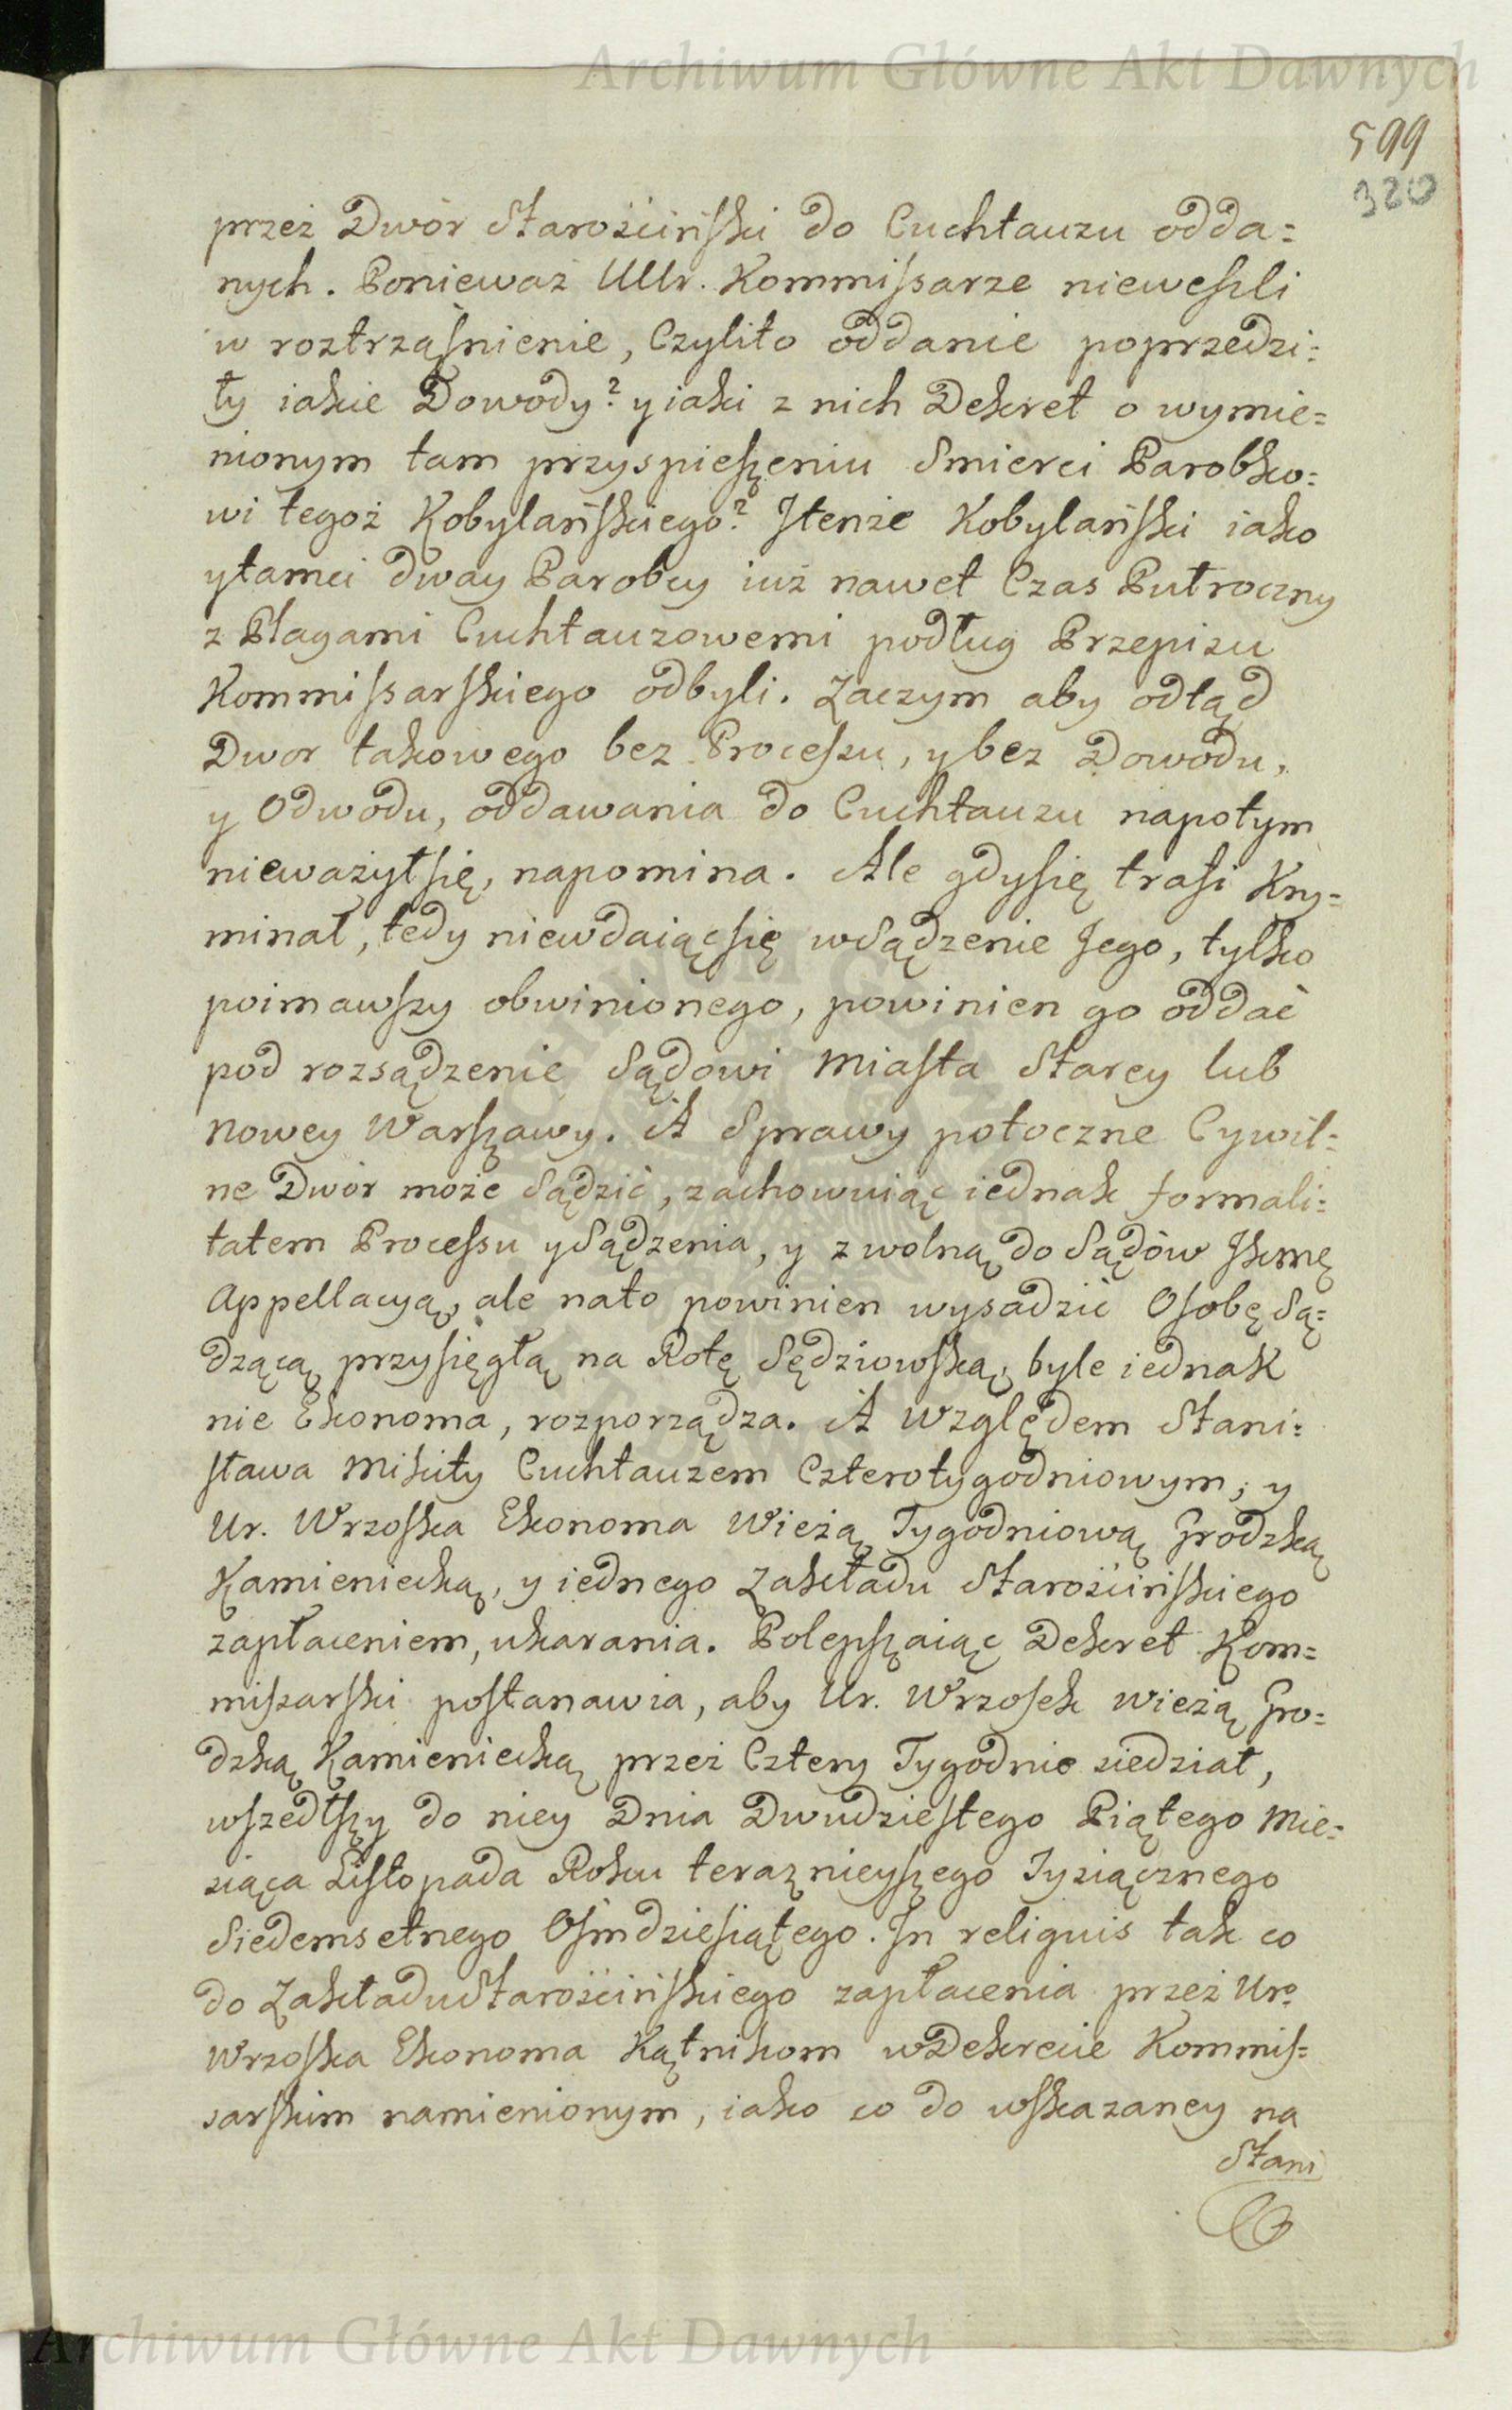 Archiwum Główne Akt Dawnych
599
320
przez Dwór Starościński do Cuchtauzu odda=
nych. Ponieważ UUr. Kommissarze nieweszli
w roztrząśnienie, Czylito oddanie poprzedzi=
ły iakie Dowody? y iaki z nich Dekret o wymie=
nionym tam przyspieszeniu Smierci Parobko=
wi tegoż Kobylańskiego? Itenże Kobylański iako
ytamci dway Parobcy iuż nawet Czas Pułroczny
z Plagami Cuchtauzowemi podług Przepisu
Kommissarskiego odbyli. Zaczym aby odtąd
Dwor takowego bez Processu, y bez Dowodu,
y Odwodu, oddawania do Cuchtauzu napotym
nieważyłsię, napomina. Ale gdysię trafi Kry=
minał, tedy niewdaiącsię wSądzenie Jego, tylko
poimawszy obwinionego, powinien go oddać
pod rozsądzenie Sądowi Miasta Starey lub
Nowey Warszawy. A Sprawy potoczne Cywil=
ne Dwór może Sądzić, zachowuiąc iednak formali=
tatem Processu ySądzenia, y z wolną do Sądów Jkmę
Appellacyą, ale nato powinien wysadzić Osobę Są=
dzącą przysięgłą na Rotę Sędziowską, byle iednak
nie Ekonoma, rozporządza. A Względem Stani=
sława Mikity Cuchtauzem Czterotygodniowym, y
Ur. Wrzoska Ekonoma Wieżą Tygodniową Grodzką
Kamieniecką, y iednego Zakładu Starościńskiego
zapłaceniem, ukarania. Polepszaiąc Dekret Kom=
missarski postanawia, aby Ur. Wrzosek wieżą Gro=
dzką Kamieniecką przez Cztery Tygodnie siedział,
wszedłszy do niey Dnia Dwudziestego Piątego Mie=
siąca Listopada Roku teraznieyszego Tysiącznego
Siedemsetnego Ośmdziesiątego. In reliquis tak co
do ZakładuStarościńskiego zapłacenia przez Uro
Wrzoska Ekonoma Kątnikom wDekrecie Kommis=
sarskim namienionym, iako co do wskazaney na
Stani
Archiwum Główne Akt Dawnych